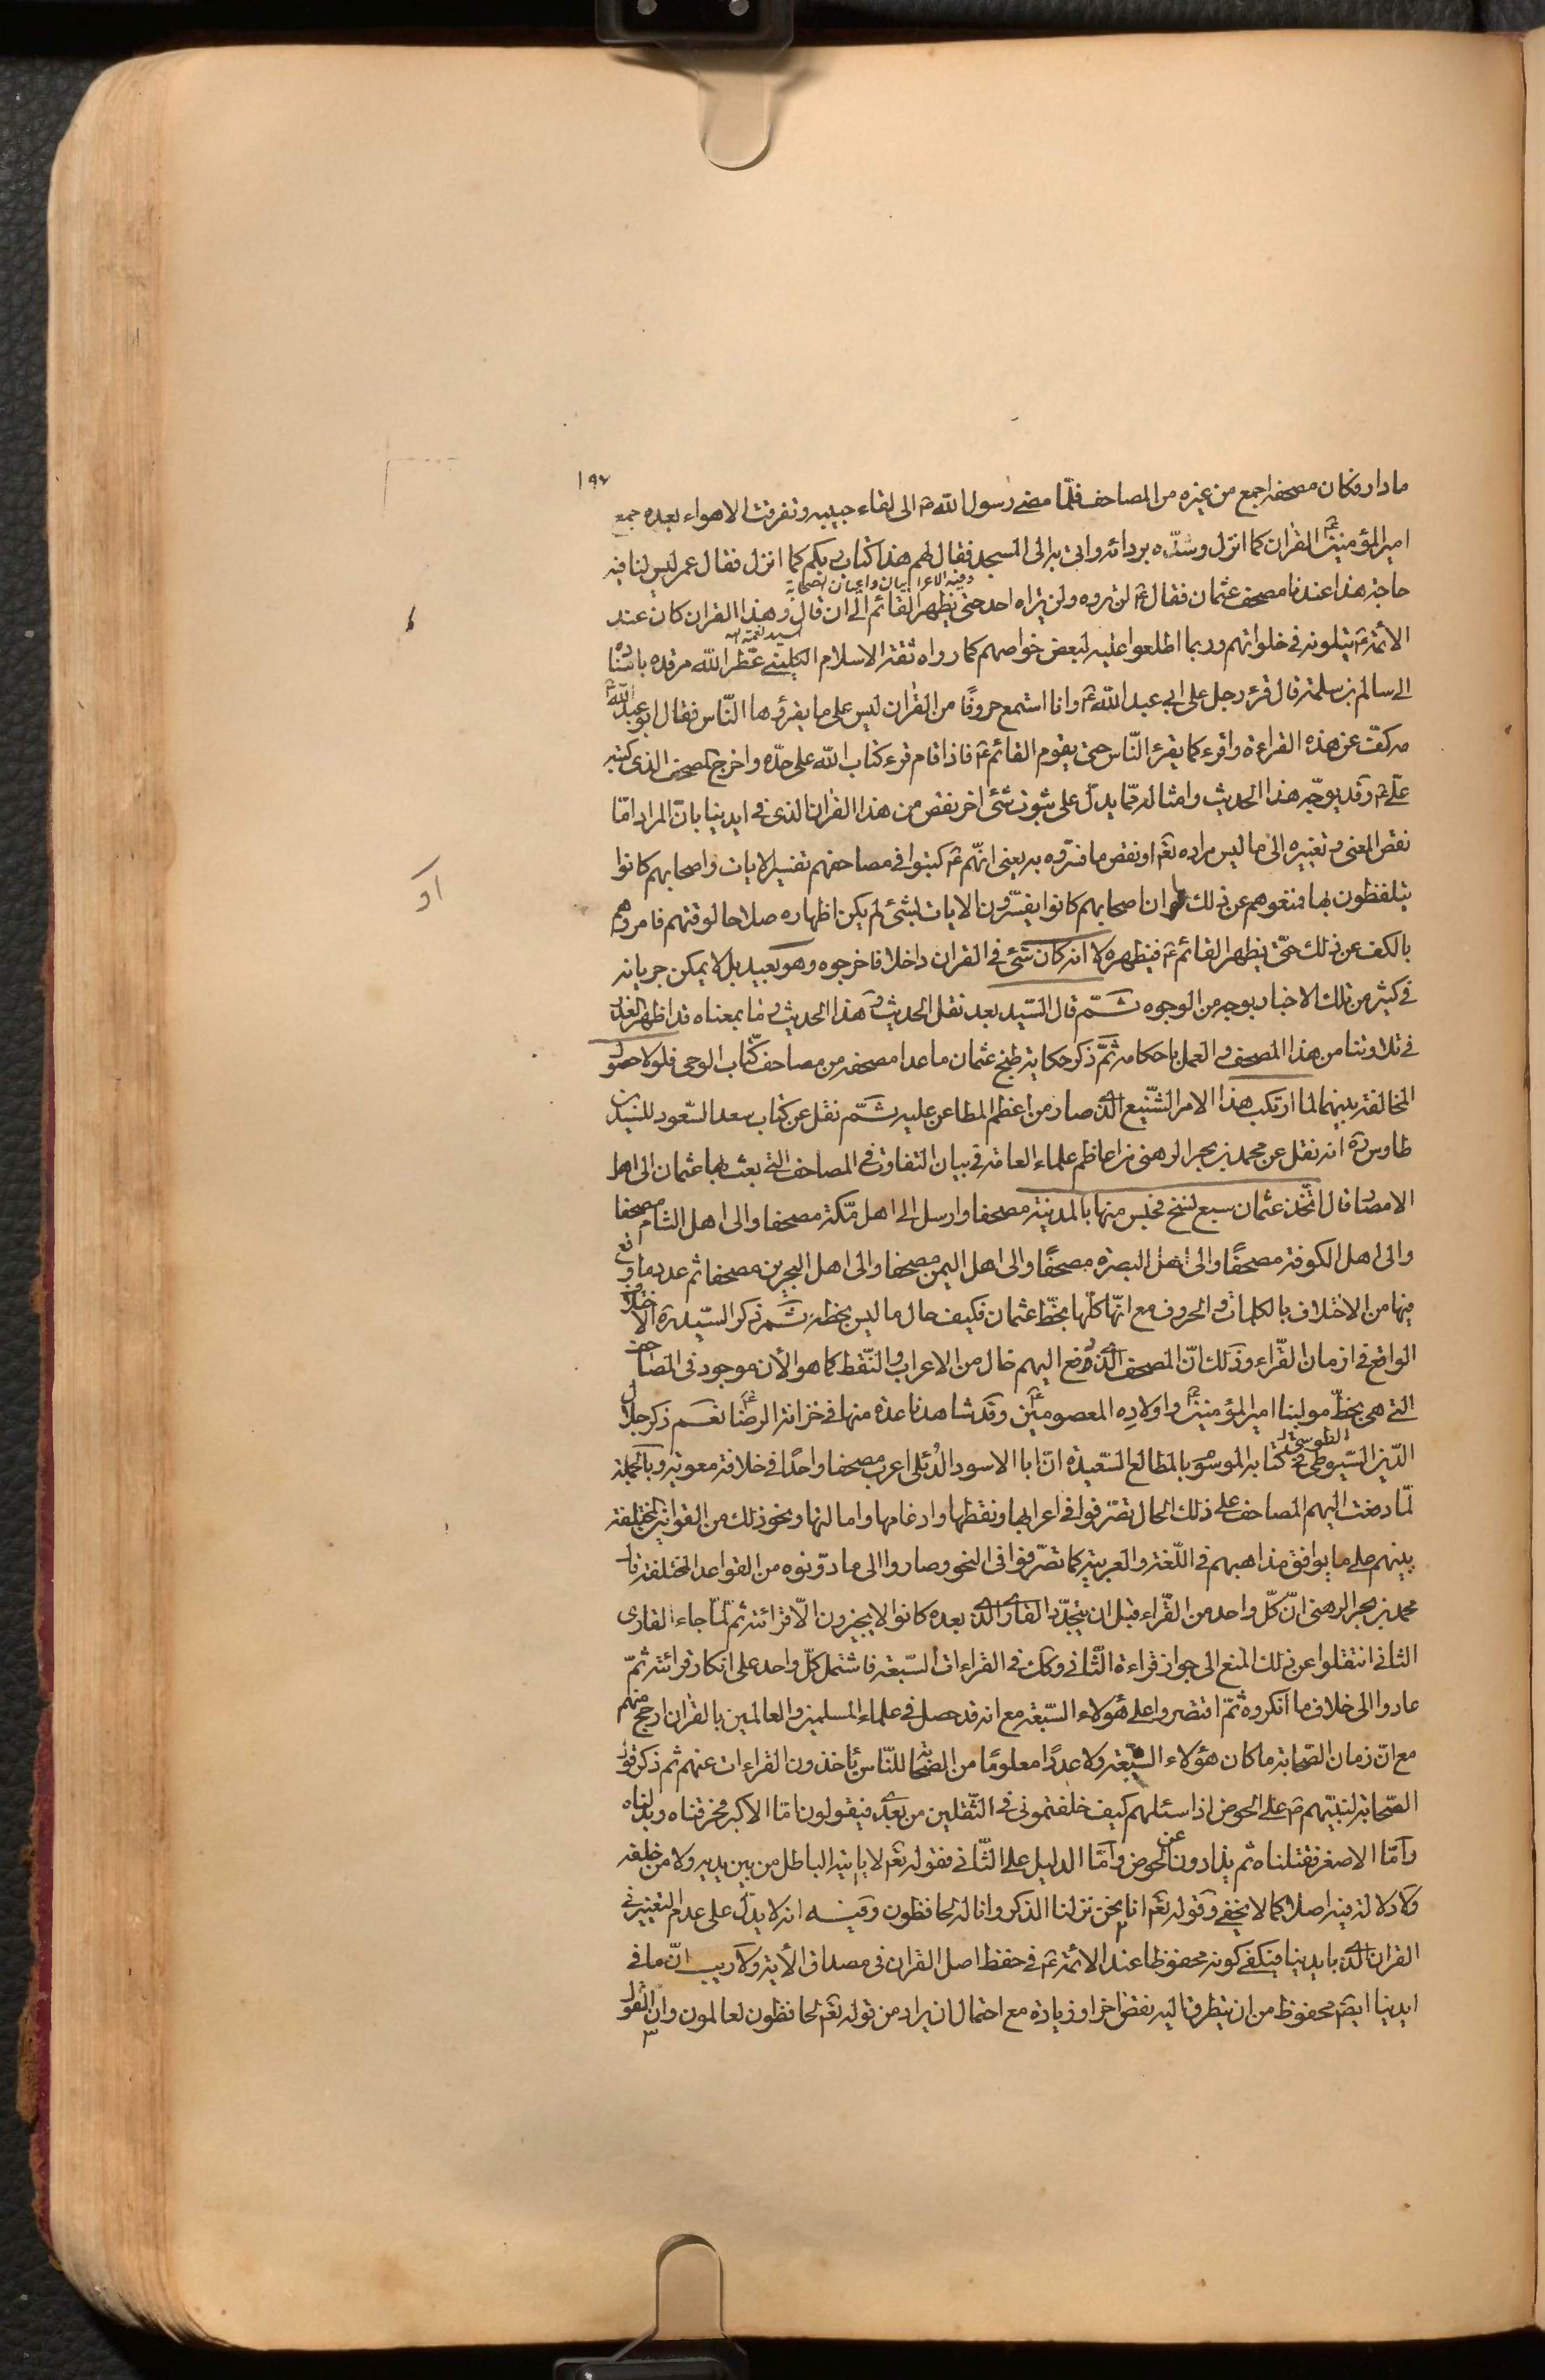 ١٩٧
ما دار فكان مصحفه اجمع من غيره من المصاحف فلمّا مضى رسول الله ص الى لقاء حبيبه وتفرقت الاهواء بعده جمع
امير المؤمنين ع القران كما انزل وشدّه بردائه واتى به الى المسجد فقال لهم هذا كتاب ربكم كما انزل فقال عمر ليس لنا فيه
حاجة هذا عندنا مصحف عثمان فقال ع لن تروه ولن يراه احد حتى يظهر القائم الى ان قال وهذا القران كان عند
الأئمة ع يتلونه فى خلواتهم وربما اطلعوا عليه لبعض خواصهم كما رواه ثقة الاسلام الكلينى عطّر الله مرقده باسناده
الى سالم بن سلمة قال قرء رجل على ابى عبد الله ع وانا استمع حروفًا من القران ليس على ما يقرؤها النّاس فقال ابو عبد الله ع
مه كفّ عن هذه القراءة واقرء كما يقرء النّاس حتى يقوم القائم ع فاذا قام قرء كتاب الله على حدّه واخرج المصحف الذى كتبه
علىّ ع وقد يوجّه هذا الحديث وامثاله ممّا يدلّ على ثبوت شئ اخر نقص من هذا القران الذى فى ايدينا بانّ المراد امّا
نقص المعنى وتغييره الى ما ليس مراده تع او نقص ما فسّروه به يعنى انّهم ع كتبوا فى مصاحفهم تفسير الايات واصحابهم كانوا
يتلفظون بها فمنعوهم عن ذلك او ان اصحابهم كانوا يفسّرون الايات بشئ لم يكن اظهاره صلاحا لوقتهم فامروهم
بالكف عن ذلك حتّى يظهر القائم ع فيظهره لا انه كان شئ فى القران داخلا فاخرجوه وهو بعيد بل لا يمكن جريانه
فى كثير من تلك الاخبار بوجه من الوجوه ثمّ قال السّيد بعد نقل الحديث وهذا الحديث وما بمعناه قد اظهر العذر
فى تلاوتنا من هذا المصحف والعمل باحكامه ثمّ ذكر حكاية طبخ عثمان ما عدا مصحفه من مصاحف كتّاب الوحى فلولا حصول
المخالفة بينهما لما ارتكب هذا الامر الشّنيع الذى صار من اعظم المطاعن عليه ثمّ نقل عن كتاب سعد السّعود للسّيد بن
طاوس ره انه نقل عن محمد بن بحر الرهنى من اعاظم علماء العامّة فى بيان التفاوت فى المصاحف التى بعث بها عثمان الى اهل
الامصار قال اتّخذ عثمان سبع نسخ فحبس منها بالمدينة مصحفا وارسل الى اهل مكّة مصحفا والى اهل الشام مصحفا
والى اهل الكوفة مصحفًا والى اهل البصرة مصحفًا والى اهل اليمن مصحفا والى اهل البحرين مصحفا ثم عدد ما وقع
فيها من الاختلاف بالكلمات والحروف مع انّها كلّها بخطّ عثمان فكيف حال ما ليس بخطه ثم ذكر السّيد ره الاختلاف
الواقع فى ازمان القرّاء وذلك انّ المصحف الذى وقع اليهم خال من الاعراب والنّقط كما هو الأن موجود فى المصاحف
التى هى بخطّ مولينا امير المؤمنين ع واولاده المعصومين ع وقد شاهدنا عدة منها فى خزانة الرضا ع نعم ذكر جلال
الدّين السّيوطى فى كتابه الموسوم بالمطالع السّعيدة انّ ابا الاسود الدّئلى اعرب مصحفا واحدًا فى خلافة معوية وبالجملة
لمّا دفعت اليهم المصاحف على ذلك الحال تصرّفوا فى اعرابها ونقطها وادغامها وامالتها ونحو ذلك من القوانين المختلفة
بينهم على ما يوافق مذاهبهم فى اللّغة والعربية كما تصرّفوا فى النحو وصاروا الى ما دوّنوه من القواعد المختلفة قال
محمد بن بحر الرهنى انّ كلّ واحد من القرّاء قبل ان يتجدّد القارى الذى بعده كانوا لا يجيزون الّا قرائته ثم لمّا جاء القارى
الثانى انتقلوا عن ذلك المنع الى جواز قراءة الثّانى وكك فى القراءات السّبعة فاشتمل كلّ واحد على انكار قرائته ثمّ
عادوا الى خلاف ما انكروه ثمّ اقتصروا على هؤلاء السّبعة مع انه قد حصل فى علماء المسلمين والعالمين بالقران ارجح منهم
مع انّ زمان الصّحابة ما كان هؤلاء السّبعة ولا عددًا معلومًا من الصّحابة للنّاس يأخذون القراءات عنهم ثم ذكر قول
الصّحابة لنبيّهم ص على الحوض اذا سئلهم كيف خلفتمونى فى الثّقلين من بعدى فيقولون امّا الاكبر فحرقناه وبدلناه
وامّا الاصغر فقتلناه ثم يذادون عن الحوض وامّا الدليل على الثّانى فقوله تع لا يأتيه الباطل من بين يديه ولا من خلفه
ولا دلالة فيه اصلا كما لا يخفى وقوله تع انا نحن نزلنا الذكر وانا له لحافظون وفيه انه لا يدلّ على عدم التغيير فى
القران الذى بايدينا فيكفى كونه محفوظا عند الائمة ع فى حفظ اصل القران فى مصداق الأية ولا ريب انّ ما فى
ايدينا ايضا محفوظ من ان يتطرق اليه نقص اخر او زيادة مع احتمال ان يراد من قوله تع لحافظون لعالمون وان القول